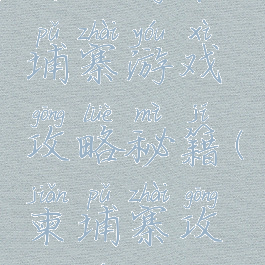 pǔ zhài yóu xì
埔寨游戏
gōng lüè mì jí
攻略秘籍(
jiǎn pǔ zhài gōng
柬埔寨攻